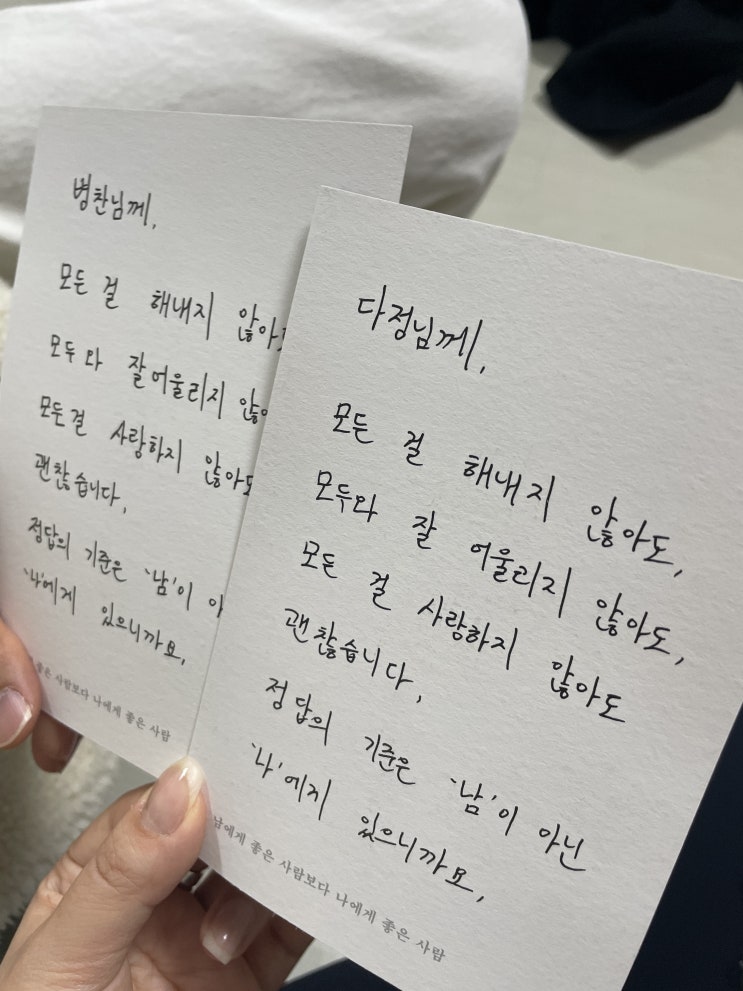 병찬님께,
모든 걸 해내지
모두와 잘 어울리지
모든걸 사랑하지
괜찮습니다,
정답의 기준은 '남'이
'나'에게 있으니까요,
좋은 사람보다 나에게 좋은 사람
다정님께,
모든 걸 해내지 않아도,
모두와 잘 어울리지 않아도,
모든 걸 사랑하지 않아도
괜찮습니다,
정답의 기준은 '남'이 아닌
'나'에게 있으니까요,
남에게 좋은 사람보다 나에게 좋은 사람